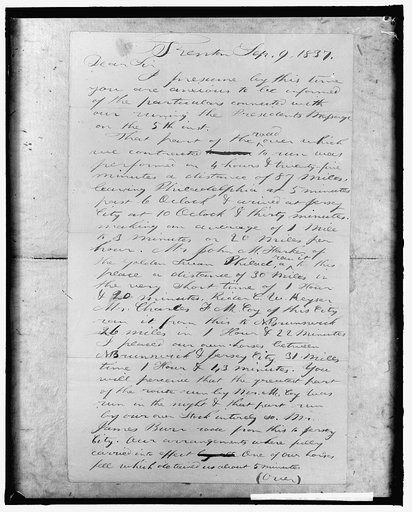 Trenton Sep. 9, 1837.
Dear Sir
I presume by this time
you are anxious to be informed
of the particulars connected with
our running the Presidents Message
on the 5th inst.
That part of the road over which
we contracted to run was
performed in 4 hours & twenty five
minutes a distance of 87 Miles,
leaving Philadelphia at 5 minutes
past 6 Oclock & arrived at Jersey
City at 10 Oclock & thirty minutes.
making an average of 1 Mile
to 3 Minutes or 20 Miles per
hour. Mr. John M. of
the golden Swan Philad. ran it to this
place a distance of 30 Miles in
the very short time of 1 Hour
& 20 minutes, Rider C. W. Keyser
Mr. Charles F. McCoy of this City
run it from this to NBrunswick
26 miles in 1 Hour & 22 Minutes
I placed our own horses between
NBrunswick & Jersey City 31 Miles
time 1 Hour & 43 minutes. You
will perceive that the greatest part
of the route run by Mr. McCoy was
run in the night & that part run
by our own Stock entirely so. Mr.
James Burr rode from this to Jersey
City. Our arrangements where fully
carried into effect One of our horses
fell which detained us about 5 minutes
(Over)